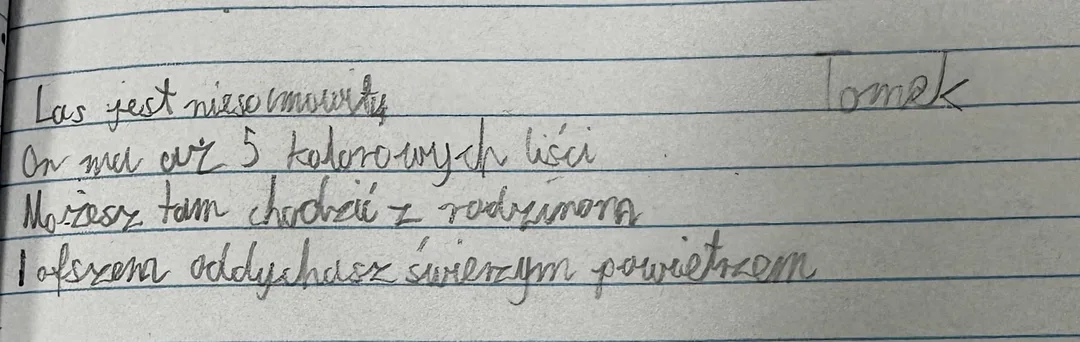 Las jest niesamowity
Tomek
On ma aż 5 kolorowych liści
Możesz tam chodzić z rodzinom
I afszem oddychasz świerzym powietrzem